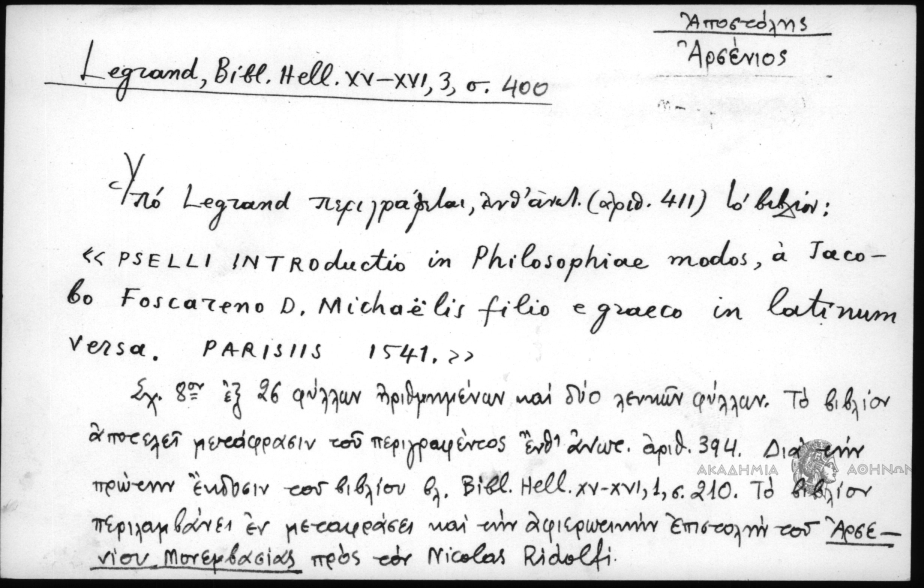 Ἀποστόλης
Ἀρσένιος
Legrand, Bibl. Hell. XV–XVI, 3, σ. 400
Ὑπό Legrand περιγράφεται, ἐνθ' ἀνωτ. (ἀριθ. 411) τό βιβλίον:
« PSELLI INTRODuctio in Philosophiae modos, à Jaco-
bo Foscareno D. Michaëlis filio e graeco in latinum
versa. PARISIIS 1541. »
Σχ. 8ον ἐξ 26 φύλλων ἠριθμημένων καί δύο λευκῶν φύλλων. Τό βιβλίον
ἀποτελεῖ μετάφρασιν τοῦ περιγραφέντος ἔνθ' ἄνωτ. ἀριθ. 394. Διά τήν
ΑΚΑΔΗΜΙΑ ΑΘΗΝΩΝ
πρώτην ἔκδοσιν τοῦ βιβλίου βλ. Bibl. Hell. XV–XVI, 1, σ. 210. Τό βιβλίον
περιλαμβάνει ἐν μεταφράσει καί τήν ἀφιερωτικήν ἐπιστολήν τοῦ Ἀρσε-
νίου Μονεμβασίας πρός τόν Nicolas Ridolfi.